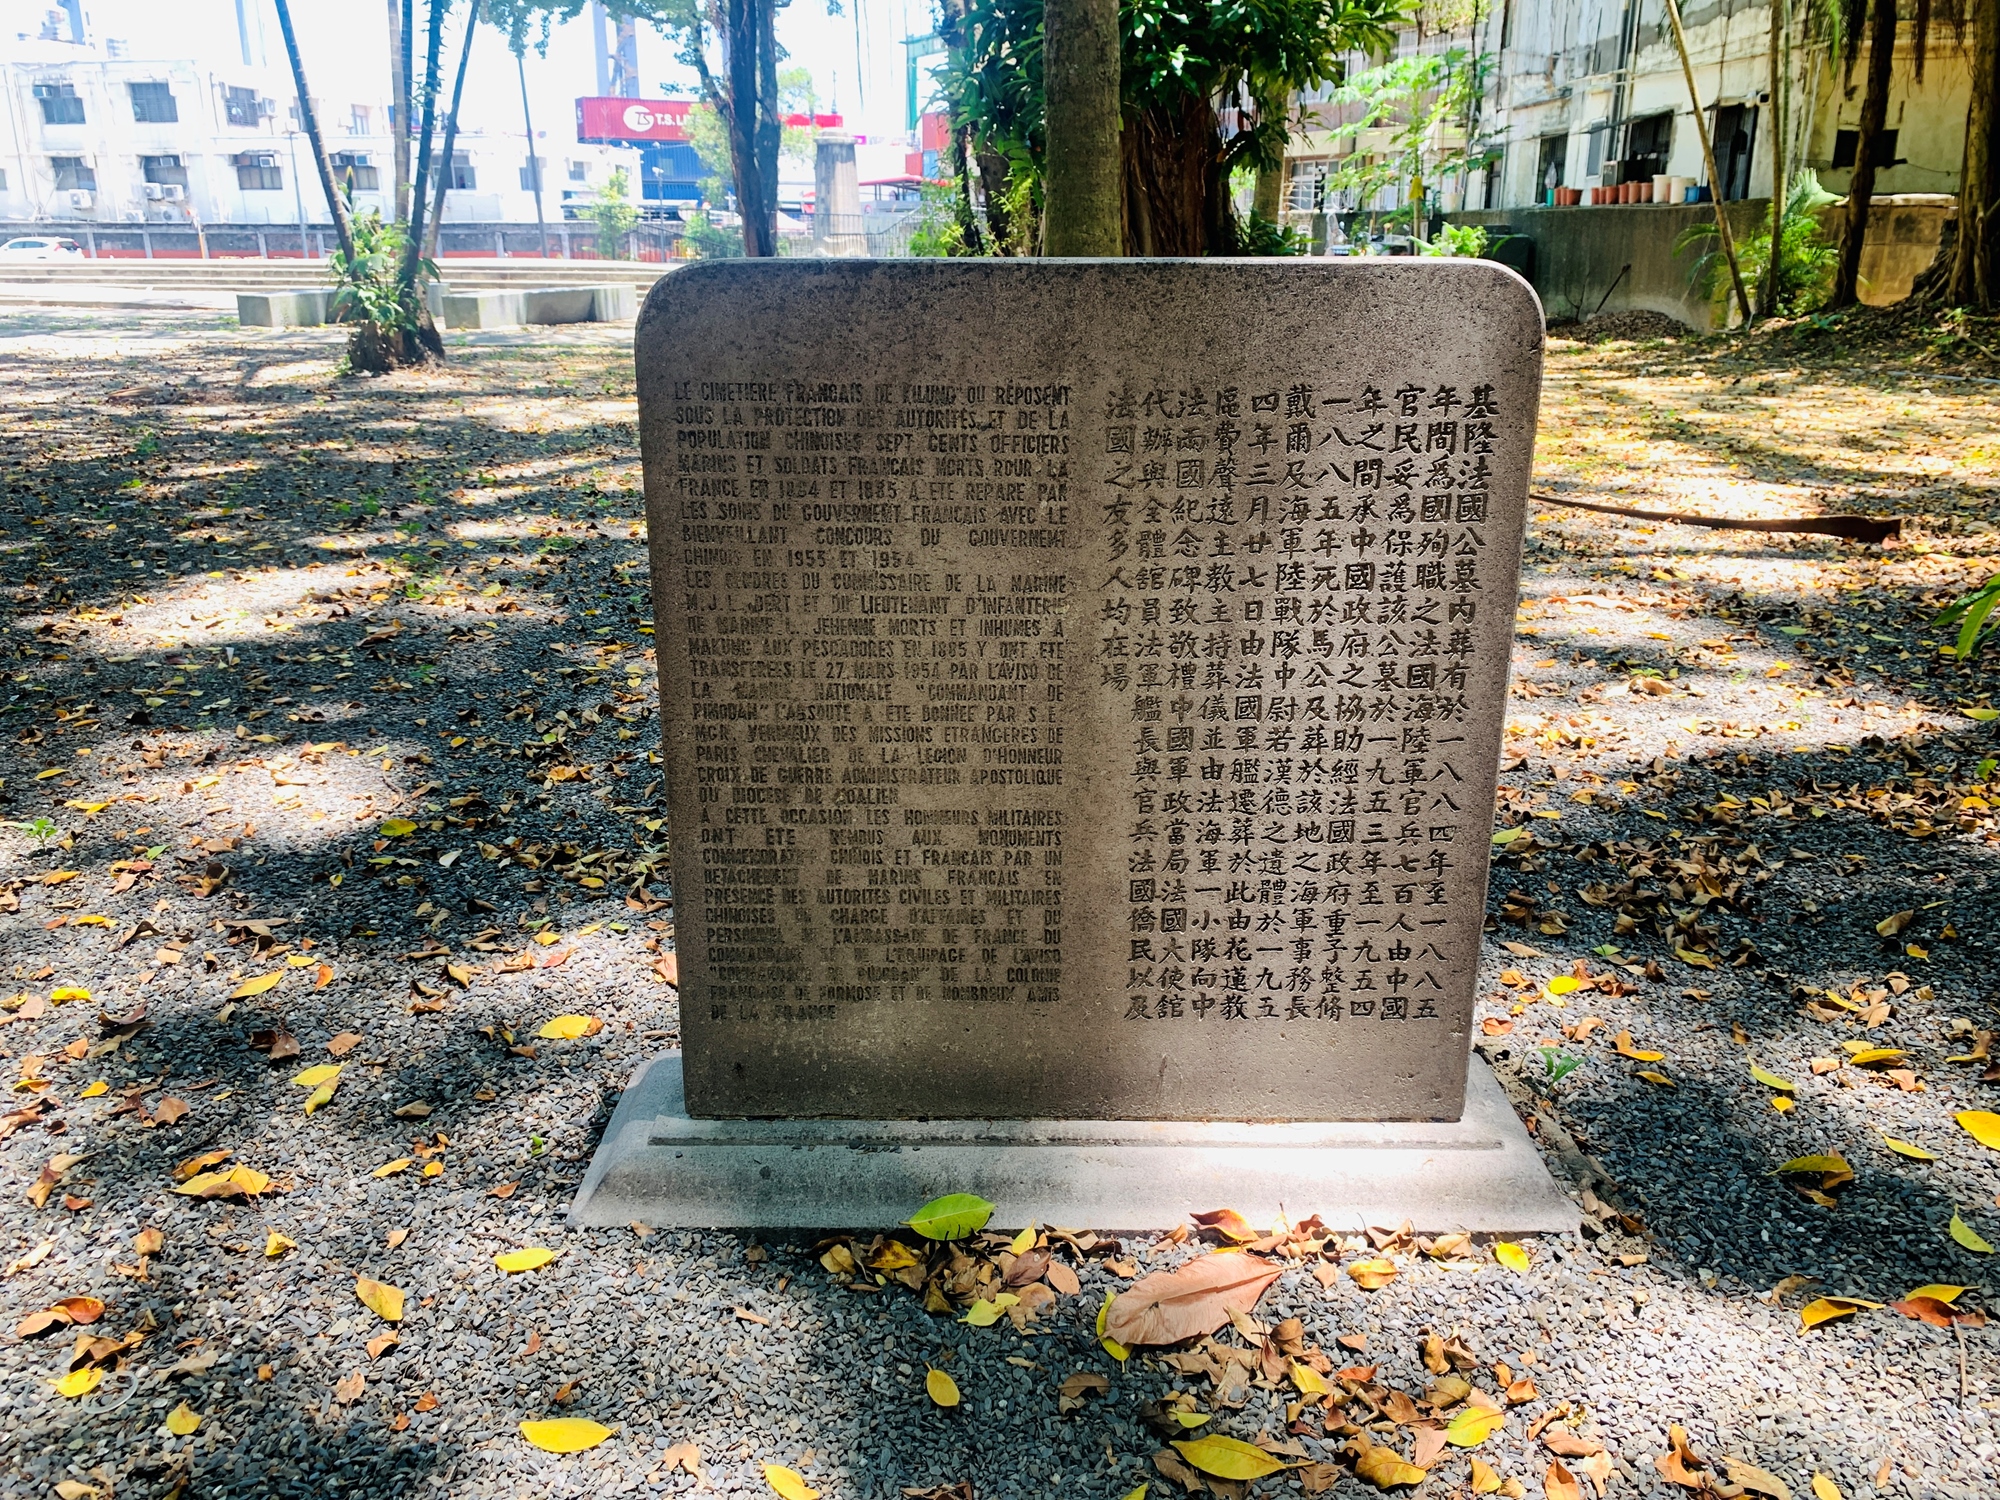 LE CIMETIERE FRANCAIS DE KILUNG OU REPOSENT
SOUS LA PROTECTION DES AUTORITES ET DE LA
POPULATION CHINOISES SEPT CENTS OFFICIERS
MARINS ET SOLDATS FRANCAIS MORTS POUR LA
FRANCE EN 1884 ET 1885 A ETE REPARE PAR
LES SOINS DU GOUVERNENT FRANCAIS AVEC LE
BIENVEILLANT CONCOURS DU GOUVERNENT
CHINOIS EN 1953 ET 1954
LES CENDRES DU COMMISSAIRE DE LA MARINE
M.J.L. DERT ET DU LIEUTENANT D'INFANTERIE
DE MARINE L. JEHENNE MORTS ET INHUMES A
MAKUNG AUX PESCADORES EN 1885 Y ONT ETE
TRANSFEREES LE 27 MARS 1954 PAR L'AVISO DE
LA MARINE NATIONALE "COMMANDANT DE
PIMODAN" L'ABSOUTE A ETE DONNEE PAR S.E.
MGR. VERINEUX DES MISSIONS ETRANGERES DE
PARIS CHEVALIER DE LA LEGION D'HONNEUR
CROIX DE GUERRE ADMINISTRATEUR APOSTOLIQUE
DU DIOCESE DE HOALIEN
A CETTE OCCASION LES HONNEURS MILITAIRES
ONT ETE RENDUS AUX MONUMENTS
COMMEMORATIF CHINOIS ET FRANCAIS PAR UN
DETACHEMENT DE MARINS FRANCAIS EN
PRESENCE DES AUTORITES CIVILES ET MILITAIRES
CHINOISES DU CHARGE D'AFFAIRES ET DU
PERSONNEL DE L'AMBASSADE DE FRANCE DU
COMMANDANT ET DE L'EQUIPAGE DE L'AVISO
"COMMANDANT DE PIMODAN" DE LA COLONIE
FRANCAISE DE FORMOSE ET DE NOMBREUX AMIS
DE LA FRANCE
基隆法國公墓內葬有於一八八四年至一八八五
年間為國殉職之法國海陸軍官兵七百人由中國
官民妥爲保護該公墓於一九五三年至一九五四
年之間承中國政府之協助經法國政府重予整脩
一八八五年死於馬公及葬於該地之海軍事務長
戴爾及海軍陸戰隊中尉若漢德之遺體於一九五
四年三月廿七日由法國軍艦遷葬於此由花蓮教
區費聲遠主教主持葬儀並由法海軍一小隊向中
法兩國紀念碑致敬禮中國軍政當局法國大使舘
代辦與全體舘員法軍艦長與官兵法國僑民以及
法國之友多人均在場
TS T.S. LI